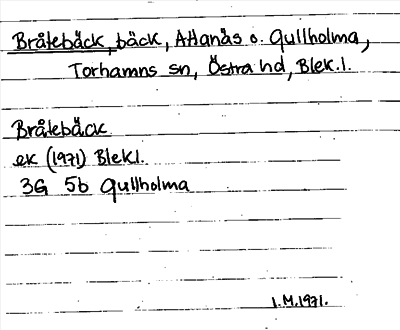 Bråtebäck, bäck, Attanäs o. Gullholma,
Torhamns sn, Östra hd, Blek.l.
Bråtebäck
ek (1971) Blekl.
3G 5b Gullholma
I.M.1971.